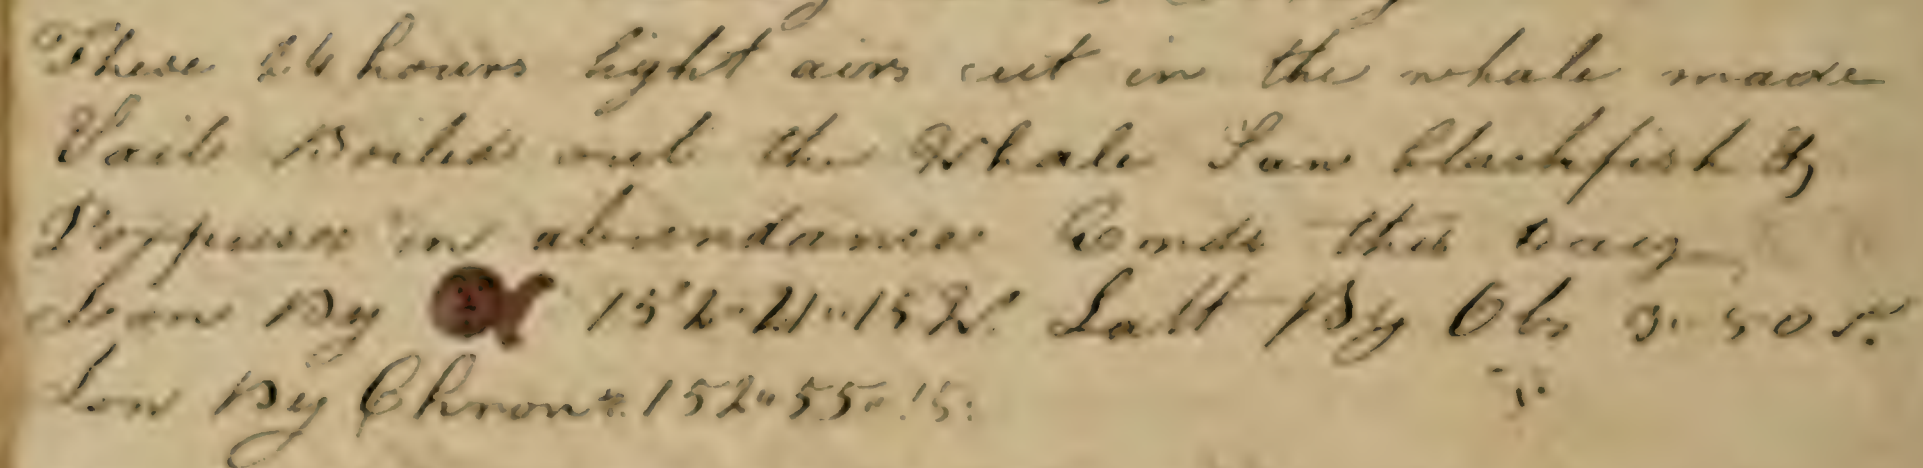 These 24 hours light airs cut in the whale made
Sail Boiled out the Whale Saw blackfish &
Porpuses in abundance Ends this day
Lon By 152"21"15 W. Latt By Obs 3"50 S.
Lon By Chron. 152"55"15.